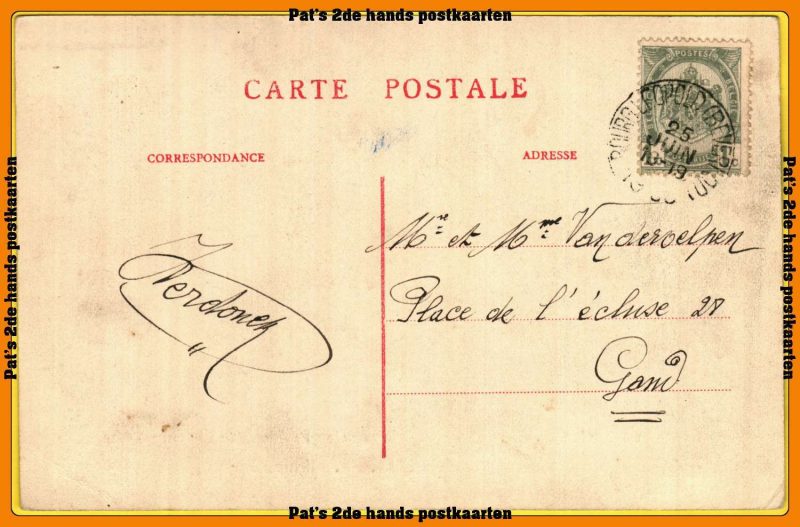 Pat's 2de hands postkaarten
CARTE POSTALE
CORRESPONDANCE
ADRESSE
POSTES
BOURG-LEOPOLD
25
JUIN
Mre et Mme Vandervelpen
Place de l'écluse 28
Gand
Pat's 2de hands postkaarten
Pat's 2de hands postkaarten
Pat's 2de hands postkaarten